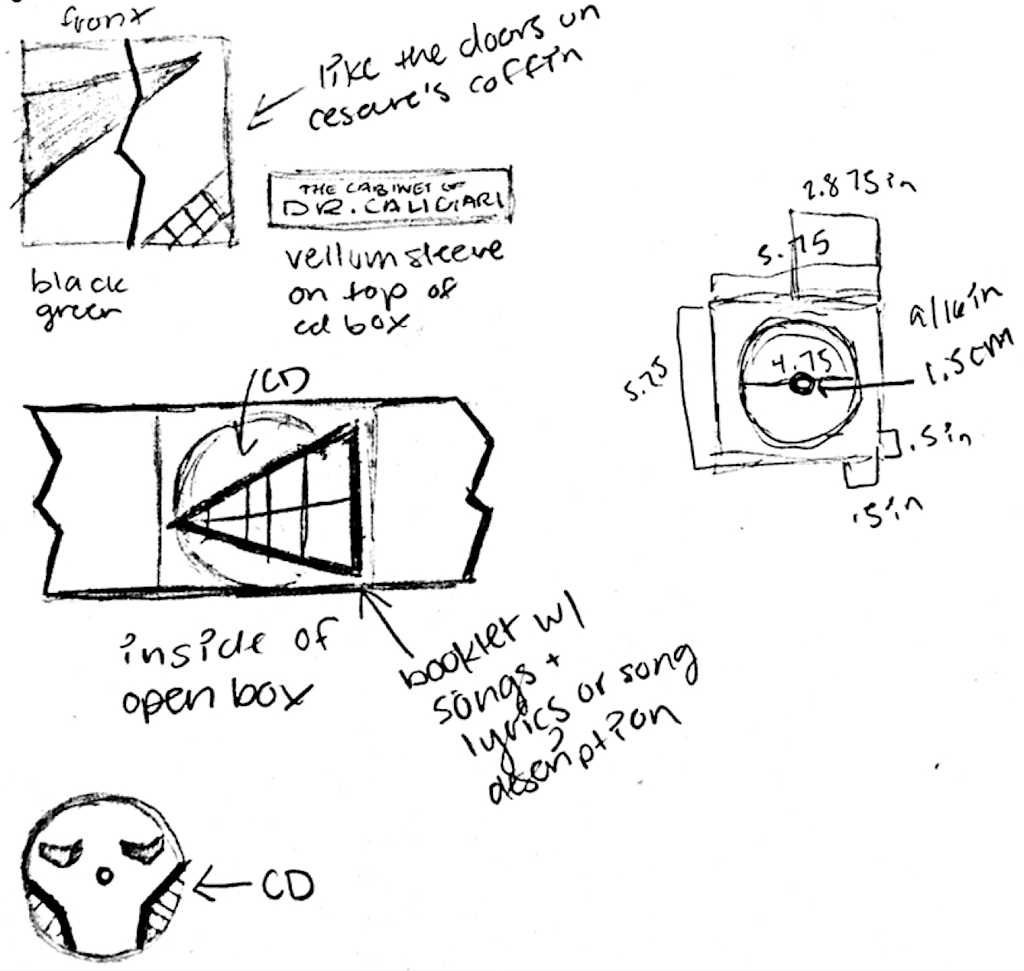 front
like the doors on
cesare's coffin
THE CABINET OF
DR. CALIGARI
vellum sleeve
on top of
cd box
black
green
2.875in
5.75
5.25
4.75
9/16in
1.5cm
.5in
.5in
CD
inside of
open box
booklet w/
songs +
lyrics or song
description
CD